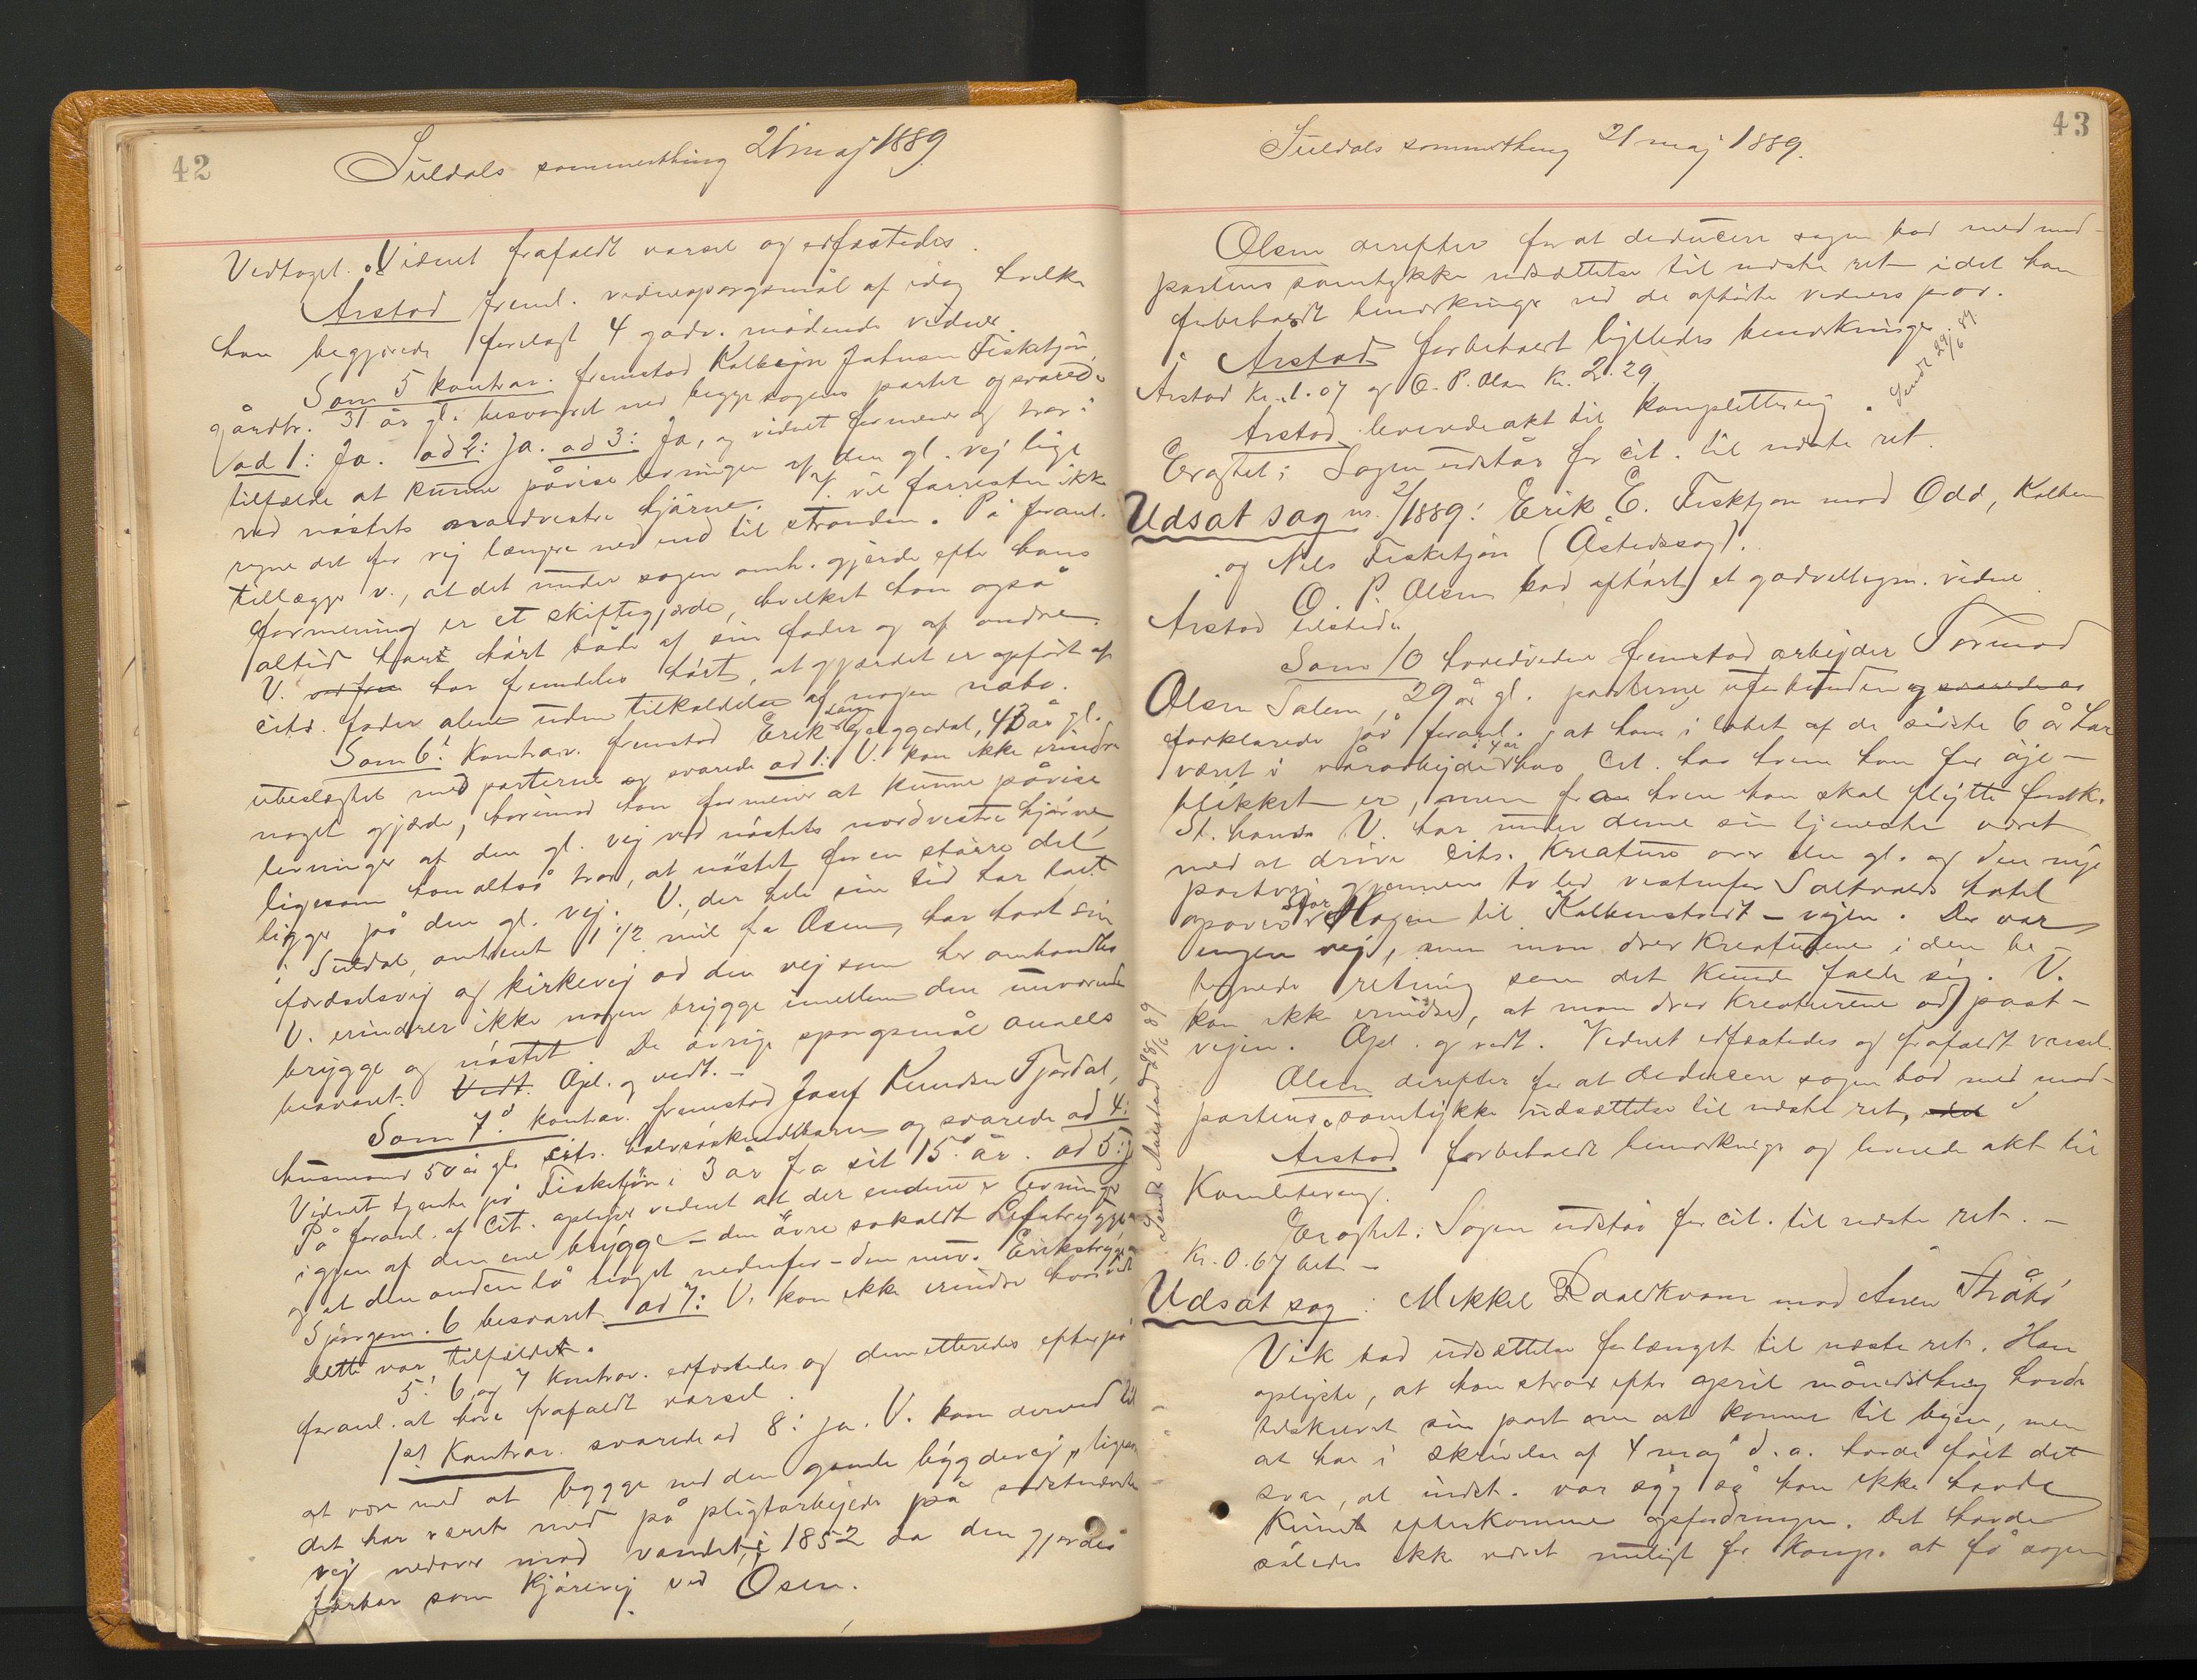 42
Suldals sommerthing 21 maj 1889
Vedtaget. Vidnet frafaldt varsel og edfæstedes.
Årstad freml. vidnespørgsmål af idag hvilke
han begjærede forelagt 4 godv. mødende vidner.
Som 5 kontrav. fremstod Kolbejn Johnsen Fisketjøn
gårdbr. 31 år gl. besvogret med begge sagens parter og svarede
ad 1: Ja. ad 2: Ja. ad 3: Ja, og vidnet formener og tror i
tilfælde at kunne påvise levninger af den gl. vej lige
ved nøstets nordvestre hjørne. V. vil forresten ikke
regne det for vej længere ned end til stranden. På foranl.
tillægger v., at det under sagen omh. gjærde efter hans
formening er et skiftegjærde, hvilket han også
altid har hørt både af sin fader og af andre.
V. har fremdeles hørt, at gjærdet er opført af
cits. fader alene uden tilkaldelse af nogen nabo.
Som 6. kontrav. fremstod Erik Gauggedal, 43 år gl.
ubeslægtet med parterne og svarede ad 1: V. kan ikke erindre
noget gjærde, hvorimod han formener at kunne påvise
levninger af den gl. vej ved nøstets nordvestre hjørne
ligesom han altså tror, at nøstet for en større del
ligger på den gl. vej. V., der hele sin tid har havt
i Suldal, omtrent 1 1/2 mil fra Osen, har havt sin
færdselsvej og kirkevej ad den vej som her omhandles
V. erindrer ikke nogen brygge imellem den nuværende
brygge og nøstet. De øvrige spørgsmål ansees
besvaret. Vedt. Opl. og vedt. –
Som 7. kontrav. fremstod Josef Knudsen Fjordal,
husmand 50 år gl. cits. halvsøskendebarn og svarede ad 4:
Vidnet tjente på Fisketjøn i 3 år fra sit 15. år. ad 5: J
På foranl. af Cit. oplyser vidnet at der endnu er levninger
igjen af den ene brygge – den øvre såkaldt Lefabryggen
og at den anden lå noget nedenfor – den nuv. Eriksbrygge
Spørgsm. 6 besvaret. ad 7: V. kan ikke erindre hvorvidt
dette var tilfældet.
5. 6 og 7 kontrav. edfæstedes og dimitteredes efter på
foranl. at have frafaldt varsel.
1st Kontrav. svarede ad 8: ja. V. kom derved til
at være med at bygge ved den gamle bygdevej, ligesom
det har været med på pligtarbejde på
vej nedover mod vandet, i 1852 da den gjordes
farbar som kjørevej ved Osen.
43
Suldals sommerthing 21 maj 1889.
Olsen derefter for at deducere sagen bad med mod-
partens samtykke udsættelse til næste ret idet han
forbeholdt bemærkninger ved de afhørte vidners prov.
Årstad forbeholdt ligeledes bemærkninger.
Årstad Kr. 1.07 og O. P. Olsen Kr. 2.29.
Årstad leverede akt til komplettering. Sendt 29/6 89.
Eragtet: Sagen udstår for cit. til næste ret.
Udsat sag nr. 2/1889: Erik E. Fisktjøn mod Odd, Kolben
og Nils Fisketjøn (Åstedssag).
O. P. Olsen bad afhørt et godvilligen. vidne
Årstad tilstede
Som 10 hovedvidne fremstod arbejder Tormod
Olsen Salem, 29 år gl. parterne uforbunden og svarede
forklarede på foranl., at han i løbet af de sidste 6 år har
været i vårarbejde i 4 år hos Cit. hos hvem han for øje-
blikket er, men fra hvem han skal flytte forstk.
St. hans. V. har under denne sin tjeneste været
med at drive cits. Kreature over den gl. og den nye
postvej gjennem to led vestenfor Saltvolds hotel
opover Storhagen til Kolbenstvedt – vejen. Der var
ingen vej, men man drev kreaturene i den be-
tegnede retning som det kunde falde sig. V.
kan ikke erindre, at man drev kreaturene ad post-
vejen. Opl. og vedt. Vidnet edfæstedes og frafaldt varsel.
Olsen derefter for at deducere sagen bad med mod-
partens samtykke udsættelse til næste ret, idet
Årstad forbeholdt bemærkninger og leverede akt til
Komplettering.
Eragtet: Sagen udstår for cit. til næste ret. –
Kr. 0.67 bet. –
Sendt Aarstad 28/6 89
Udsat sag: Mikkel Roaldkvam mod Anen Stråbø
Vik bad udsættelse forlænget til næste ret. Han
oplyste, at han strax efter april månedsthing havde
tilskrevet sin part om at komme til byen, men
at han i skrivelse af 4 maj d. a. havde fået det
svar, at indst. var syg så han ikke havde
kunnet efterkomme opfordringen. Det havde
således ikke været muligt for komp. at få sagen